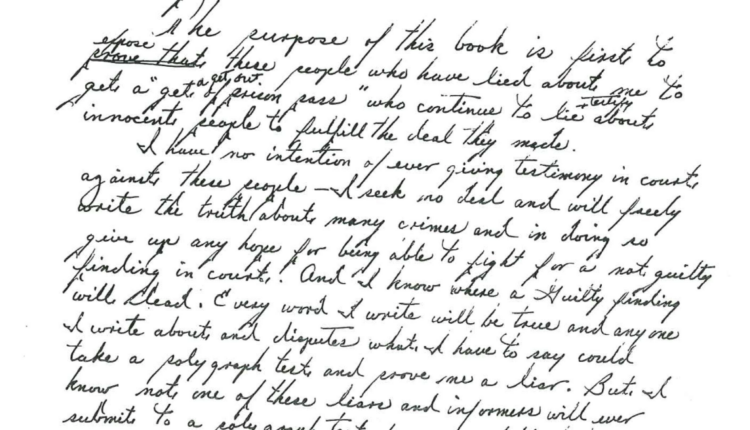 The purpose of this book is first to
expose
prove that these people who have lied about me to
a get out
gets a "gets of prison pass" who continue to lie testify about
innocent people to fulfill the deal they made.
I have no intention of ever giving testimony in court
against these people — I seek no deal and will freely
write the truth about many crimes and in doing so
give up any hope for being able to fight for a not guilty
finding in court. And I know where a Guilty finding
will lead. Every word I write will be true and anyone
I write about and disputes what I have to say could
take a polygraph test and prove me a liar. But I
know not one of these liars and informers will ever
submit to a polygraph test